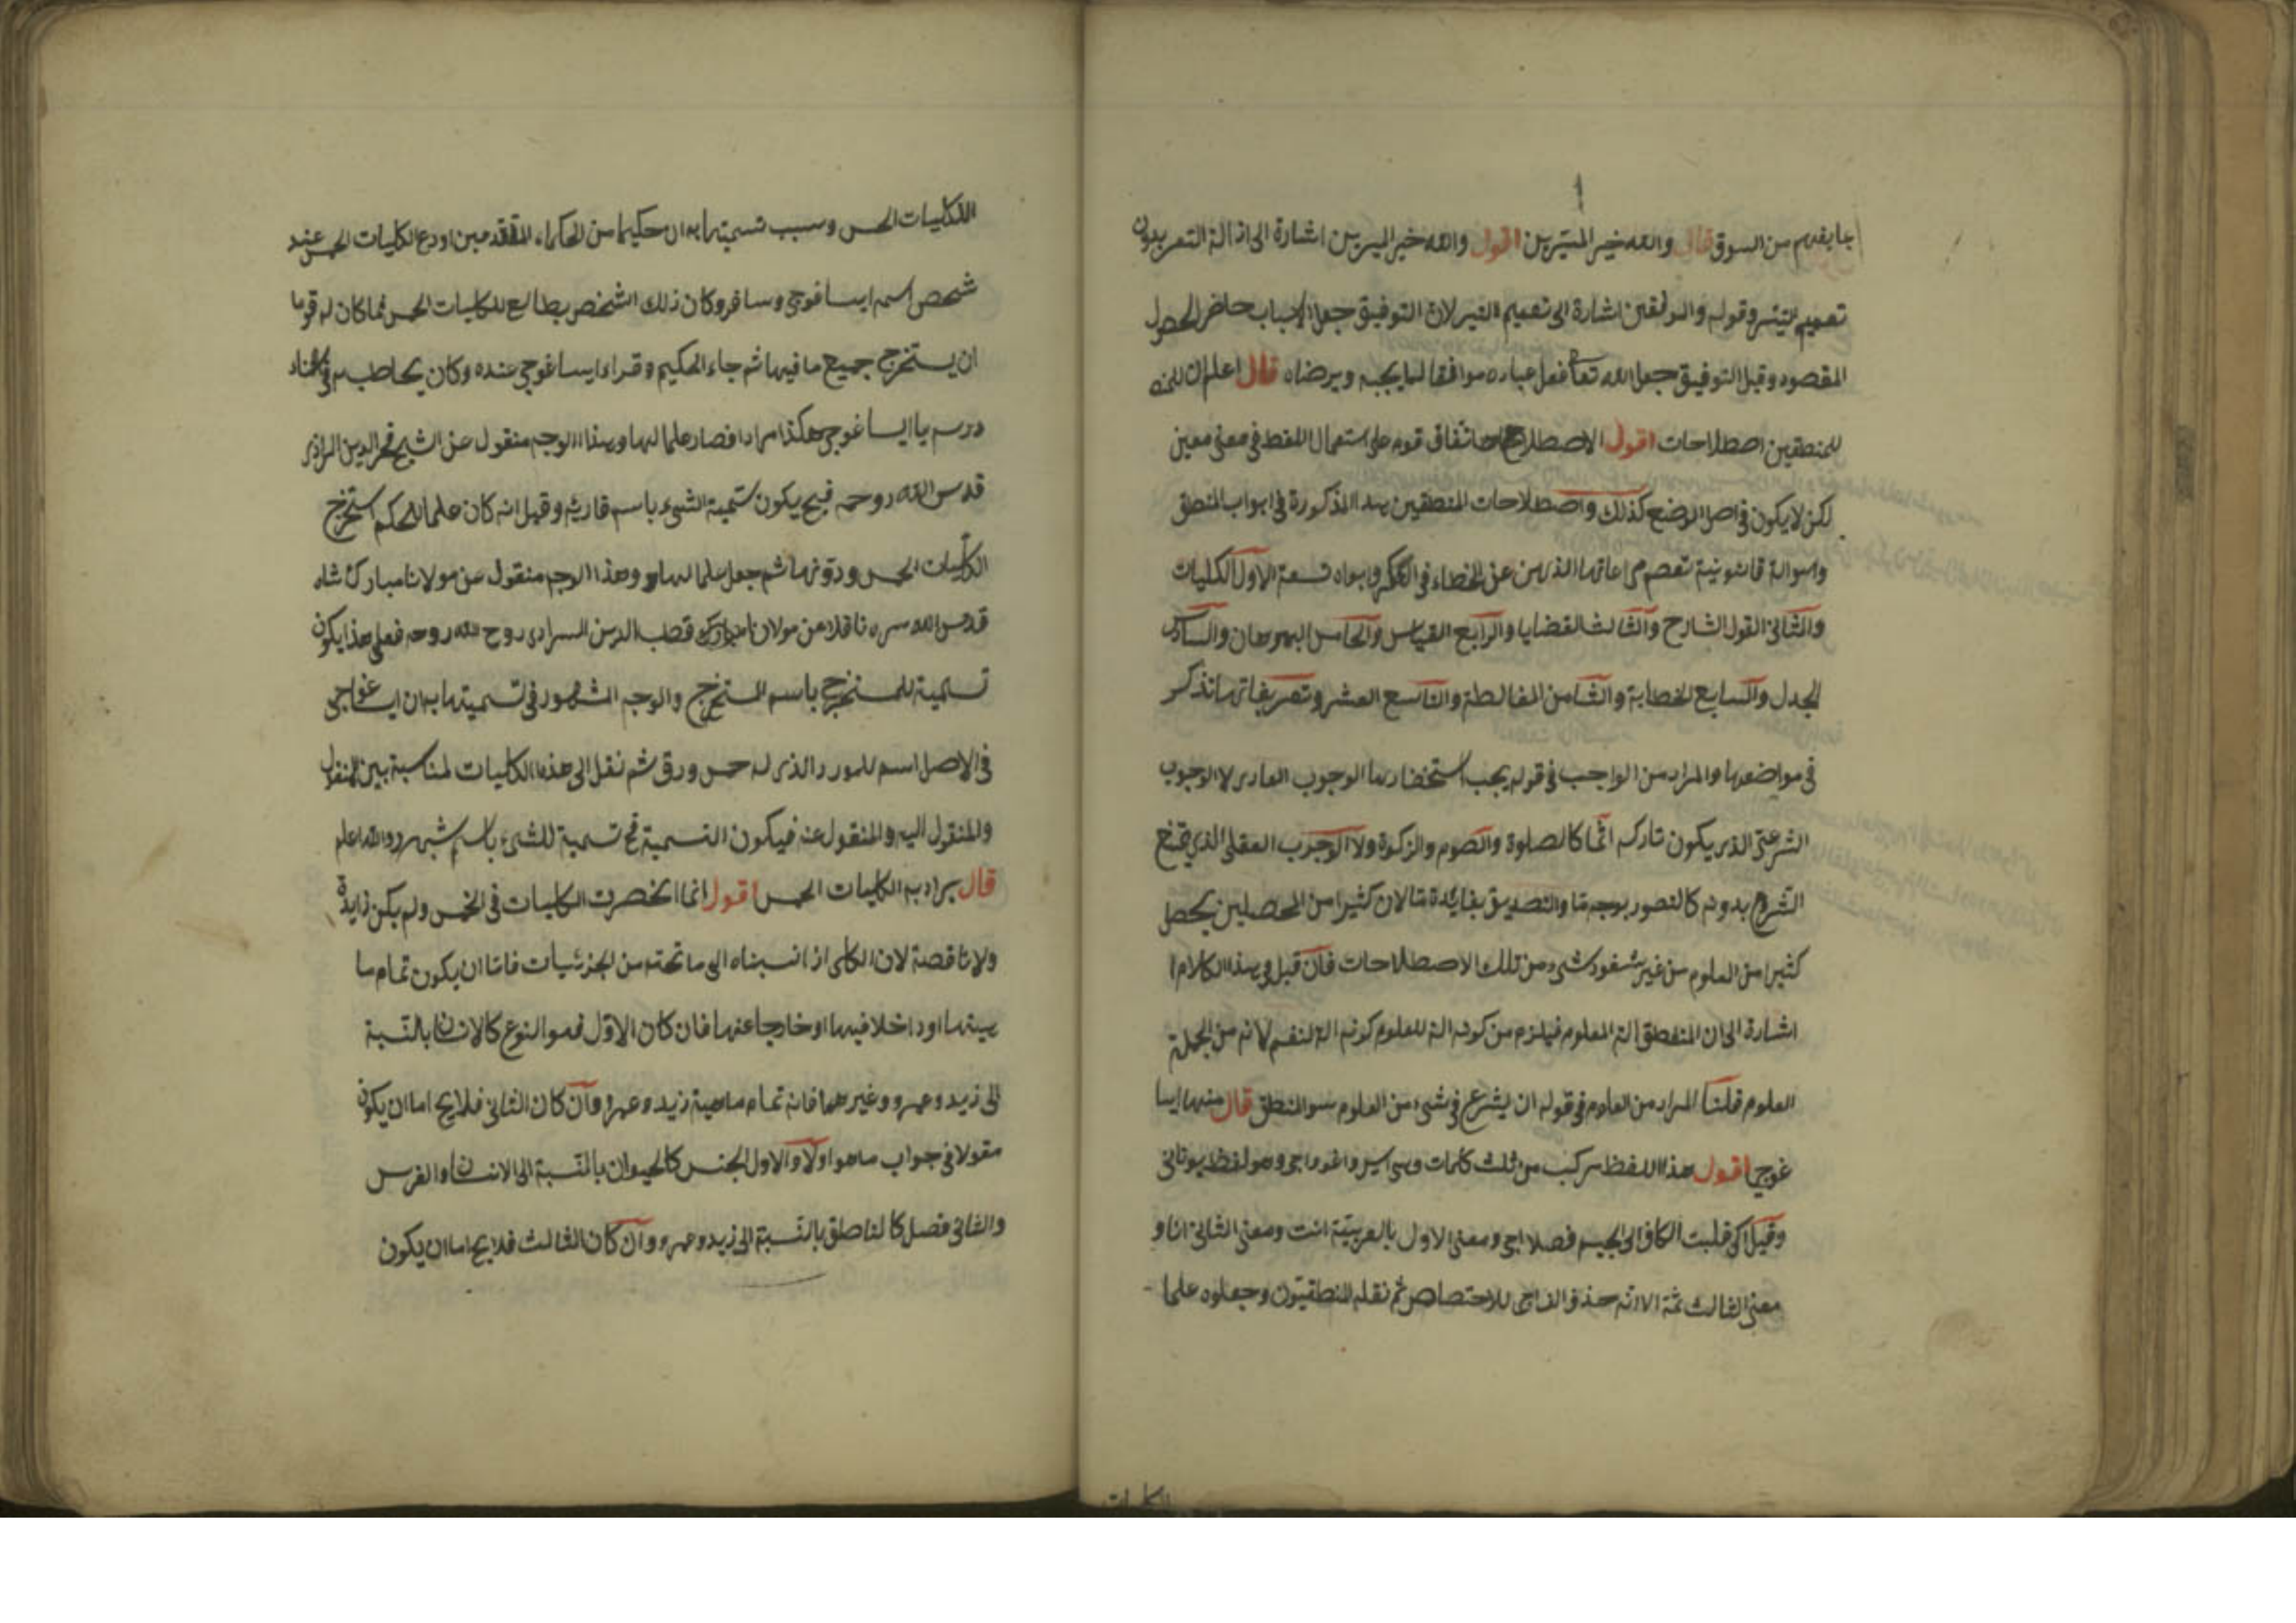 بما يفهم من السوق قال والله خير الميسرين اقول والله خير الميسرين اشارة الى ازالة التعسر بدون
تعميم للتيسر وقوله والموفقين اشارة الى تعميم الخير لان التوفيق جعل الاسباب حاضر الحصول
المقصود وقيل التوفيق جعل الله تعا فعل عباده موافقا لما يحبه ويرضاه قال اعلم ان للمنـ
للمنطقين اصطلاحات اقول الاصطلاح اتفاق قوم على استعمال اللفظ فى معنى معين
لكن لا يكون فى اصل الوضع كذلك واصطلاحات المنطقين هذا المذكورة فى ابواب المنطق
وهو الة قانونية تعصم مراعاتها الذهن عن الخطاء فى الفكر وابوابه تسعة الاول الكليات
والثانى القول الشارح والثالث القضايا والرابع القياس والخامس البرهان والسادس
الجدل والسابع الخطابة والثامن المغالطة والتاسع الشعر وتعريفاتها تذكر
فى مواضعها والمراد من الواجب فى قوله يجب استحضارها الوجوب العادى لا الوجوب
الشرعى الذى يكون تاركه اثما كالصلوة والصوم والزكوة ولا الوجوب العقلى الذى يمتنع
الشروع بدونه كالتصور بوجه ما والتصديق بفايدة ما لان كثيرا من المحصلين يحصل
كثيرا من العلوم من غير شعور شىء من تلك الاصطلاحات فان قيل فى هذا الكلام
اشارة الى ان المنطق الة العلوم فيلزم من كونه الة للعلوم كونه الة لنفسه لانه من الجملة
العلوم قلنا المراد من العلوم فى قوله ان يشرع فى شىء من العلوم سو المنطق قال منها ايسا
غوجى اقول هذا اللفظ مركب من ثلث كلمات وهى ايس واغو واجى وهو لفظ يونانى
وقيل اكى قلبت الكاف الى الجيم فصار اجى ومعنى الاول بالعربية انت ومعنى الثانى انا و
معنى الثالث ثمة الا انه حذف الف اجى للاختصاص ثم نقله المنطقيون وجعلوه علما
الكليات
للكليات الخمس وسبب تسميتها به ان حكيما من الحكماء المتقدمين اودع الكليات الخمس عند
شخص اسمه ايساغوجى وسافر وكان ذلك الشخص يطالع للكليات الخمس فما كان له قوما
ان يستخرج جميع ما فيها ثم جاء الحكيم وقراء ايساغوجى عنده وكان يخاطبه فى اثناء
درسه يا ايساغوجى هكذا مرارا فصار علما لها وهذا الوجه منقول عن الشيخ فخر الدين الرازى
قدس الله روحه فح يكون تسمية الشىء باسم قاريه وقيل انه كان علما للحكيم استخرج
الكليات الخمس ودونها ثم جعل علما لها وهذا الوجه منقول عن مولانا مبارك شاه
قدس الله سره ناقلا عن مولانا قطب الدين السرازى روح الله روحه فعلى هذا يكون
تسمية للمستخرج باسم المستخرج والوجه المشهور فى تسميتها به ان ايساغوجى
فى الاصل اسم للورد الذى له خمس ورق ثم نقل الى هذه الكليات لمناسبة بين المنقول
والمنقول اليه والمنقول عنه فيكون التسمية ح تسمية للشىء باسم شبهه والله اعلم
قال يراد به الكليات الخمس اقول انما انحصرت الكليات فى الخمس ولم يكن زايدة
ولا ناقصة لان الكلى اذا نسبناه الى ما تحته من الجزئيات فاما ان يكون تمام ما
هيتها او داخلا فيها او خارجا عنها فان كان الاول فهو النوع كالانسان بالنسبة
الى زيد وعمرو وغيرهما فانه تمام ماهية زيد وعمرو وان كان الثانى فلا يخ اما ان يكون
مقولا فى جواب ما هو اولا والاول الجنس كالحيوان بالنسبة الى الانسان والفرس
والثانى فصل كالناطق بالنسبة الى زيد وعمرو وان كان الثالث فلا يخ اما ان يكون